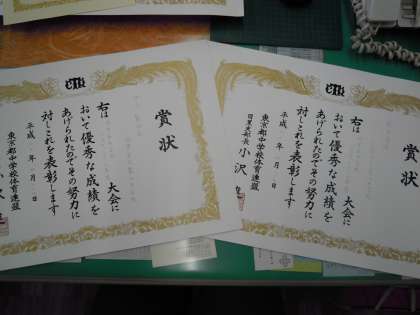 賞状
右は
大会に
おいて優秀な成績を
あげられたのでその努力に
対しこれを表彰します
平成 年 月 日
東京都中学校体育連盟
賞状
右は
大会に
おいて優秀な成績を
あげられたのでその努力に
対しこれを表彰します
平成 年 月 日
東京都中学校体育連盟
支部長 小沢